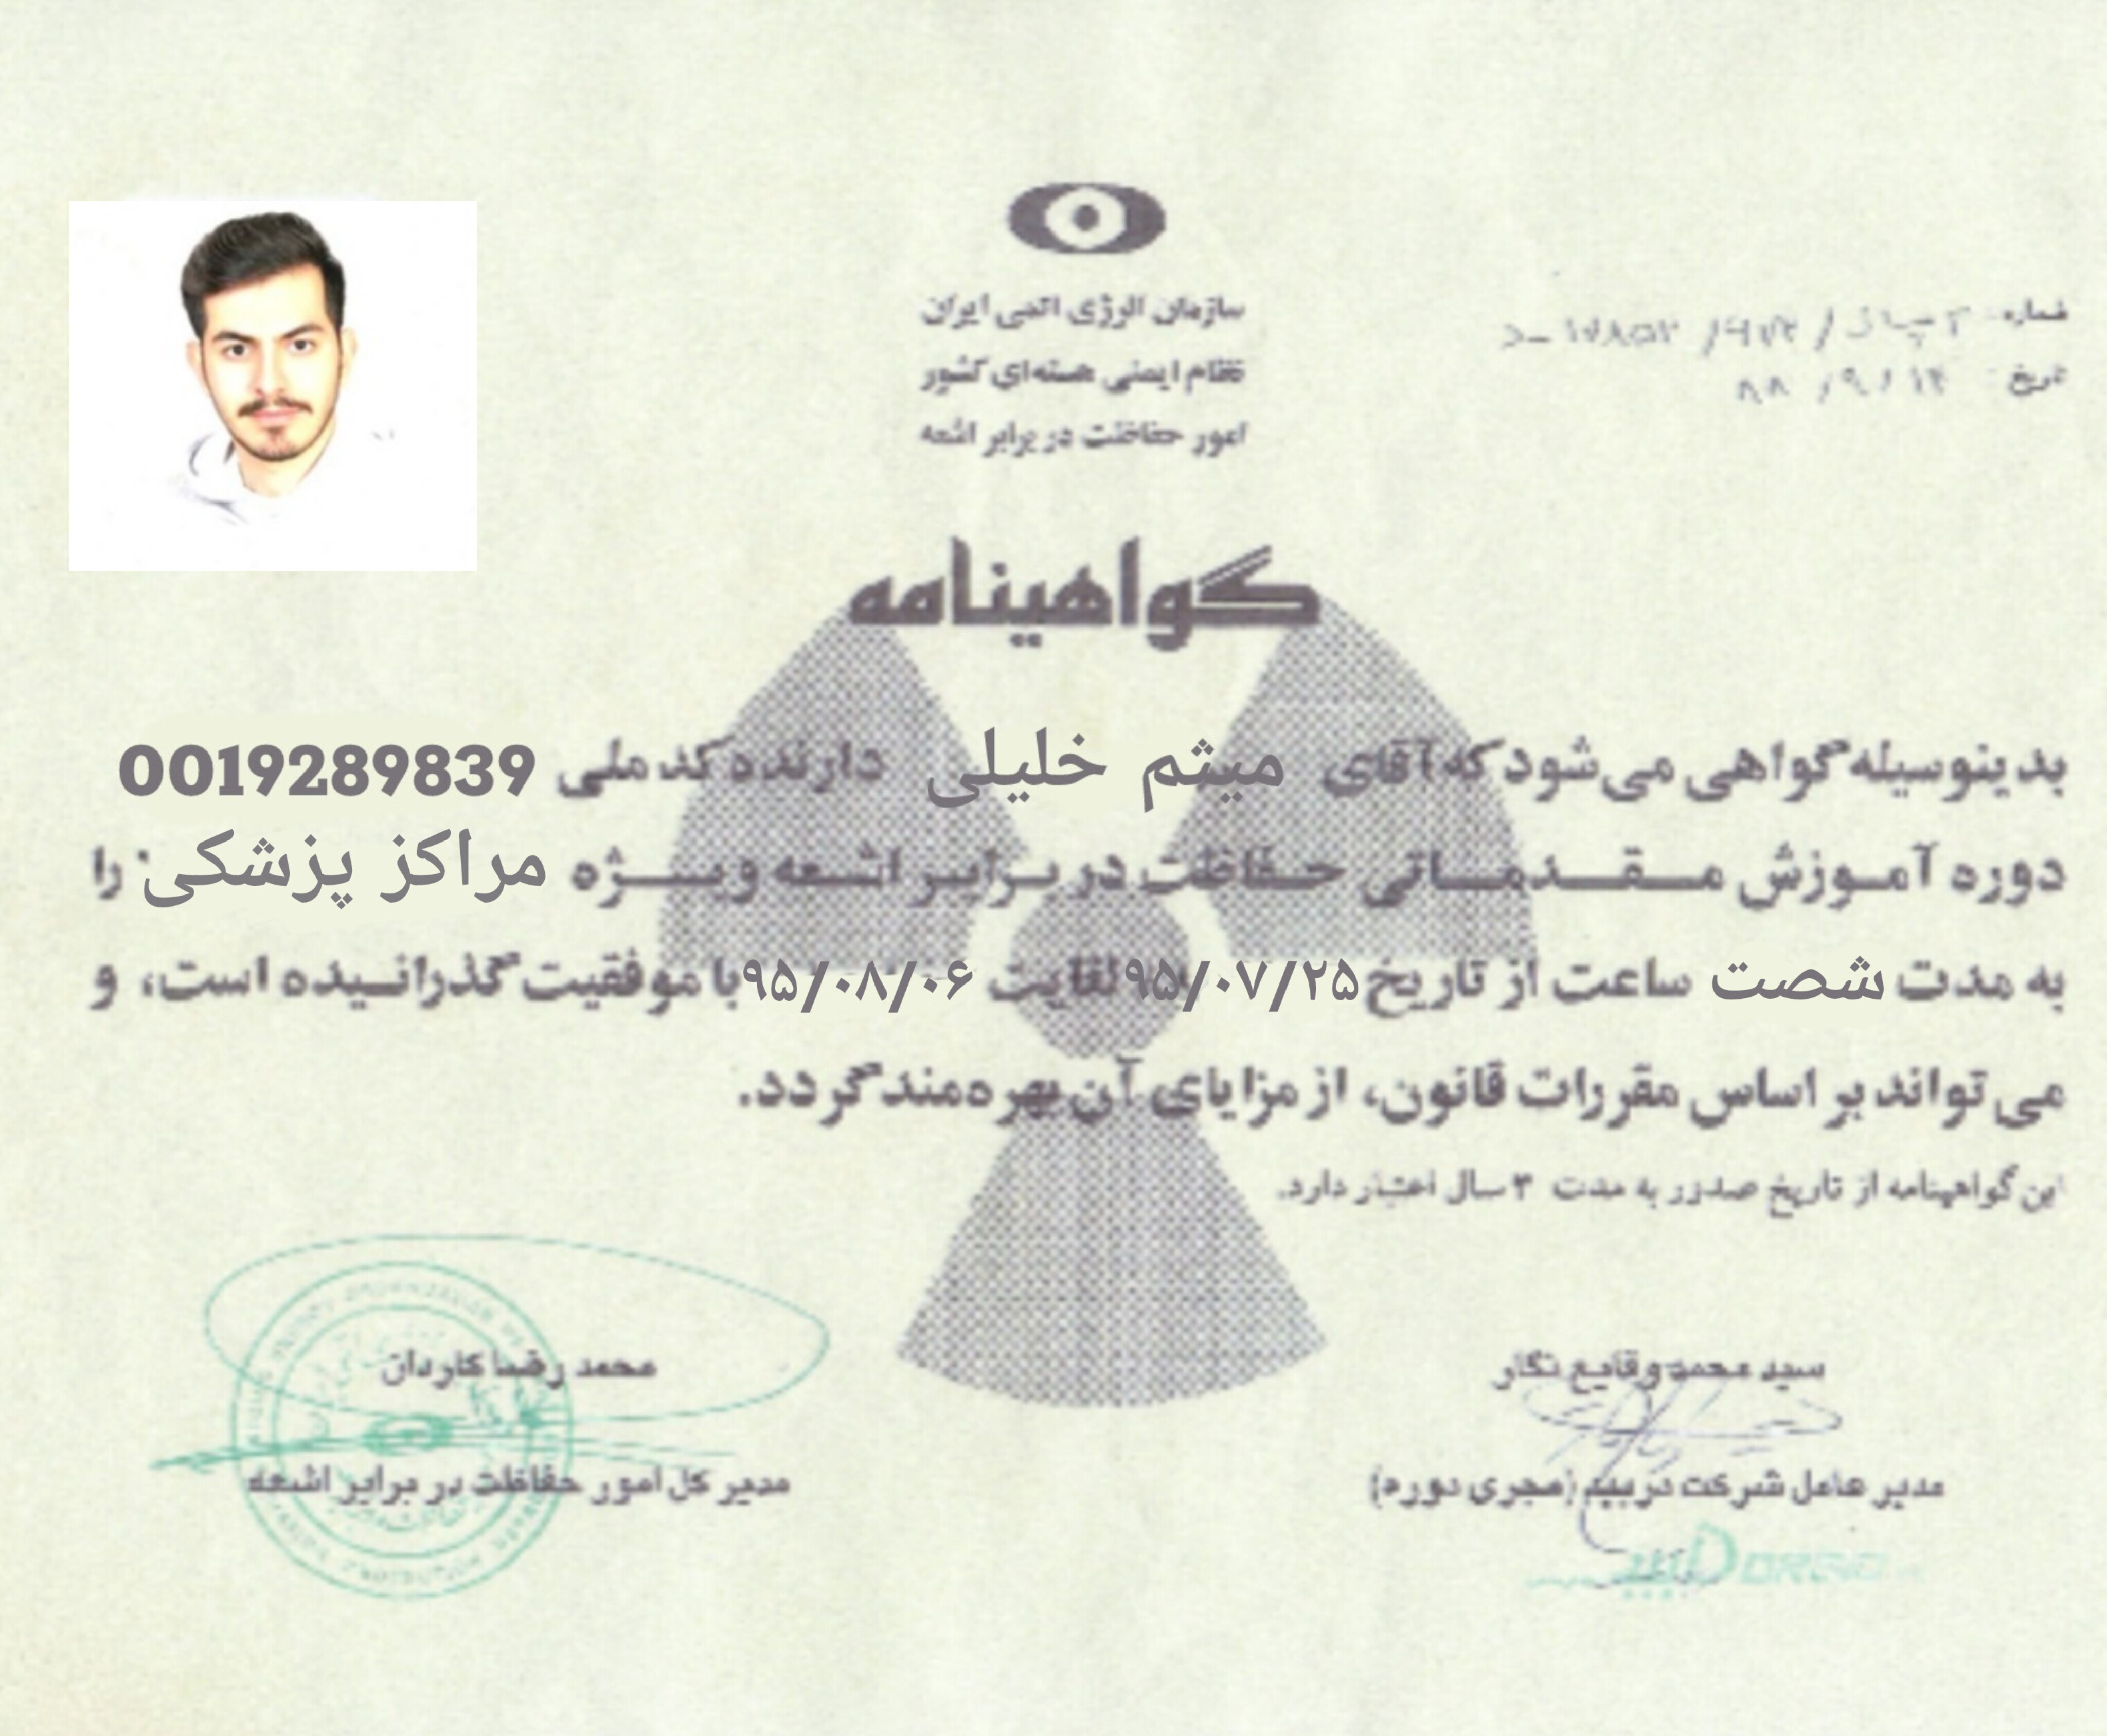 سازمان انرژی اتمی ایران
نظام ایمنی هسته‌ای کشور
امور حفاظت در برابر اشعه
شماره:
تاریخ: ۸۸/۹/۱۴
گواهینامه
بدینوسیله گواهی می‌شود که آقای میثم خلیلی دارنده کد ملی 0019289839
دوره آموزش مقدماتی حفاظت در برابر اشعه ویژه مراکز پزشکی را
به مدت شصت ساعت از تاریخ ۹۵/۰۷/۲۵ لغایت ۹۵/۰۸/۰۶ با موفقیت گذرانیده است، و
می‌تواند بر اساس مقررات قانون، از مزایای آن بهره‌مند گردد.
این گواهینامه از تاریخ صدور به مدت ۳ سال اعتبار دارد.
سید محمد وقایع نگار
مدیر عامل شرکت دربید (مجری دوره)
محمد رضا کاردان
مدیر کل امور حفاظت در برابر اشعه